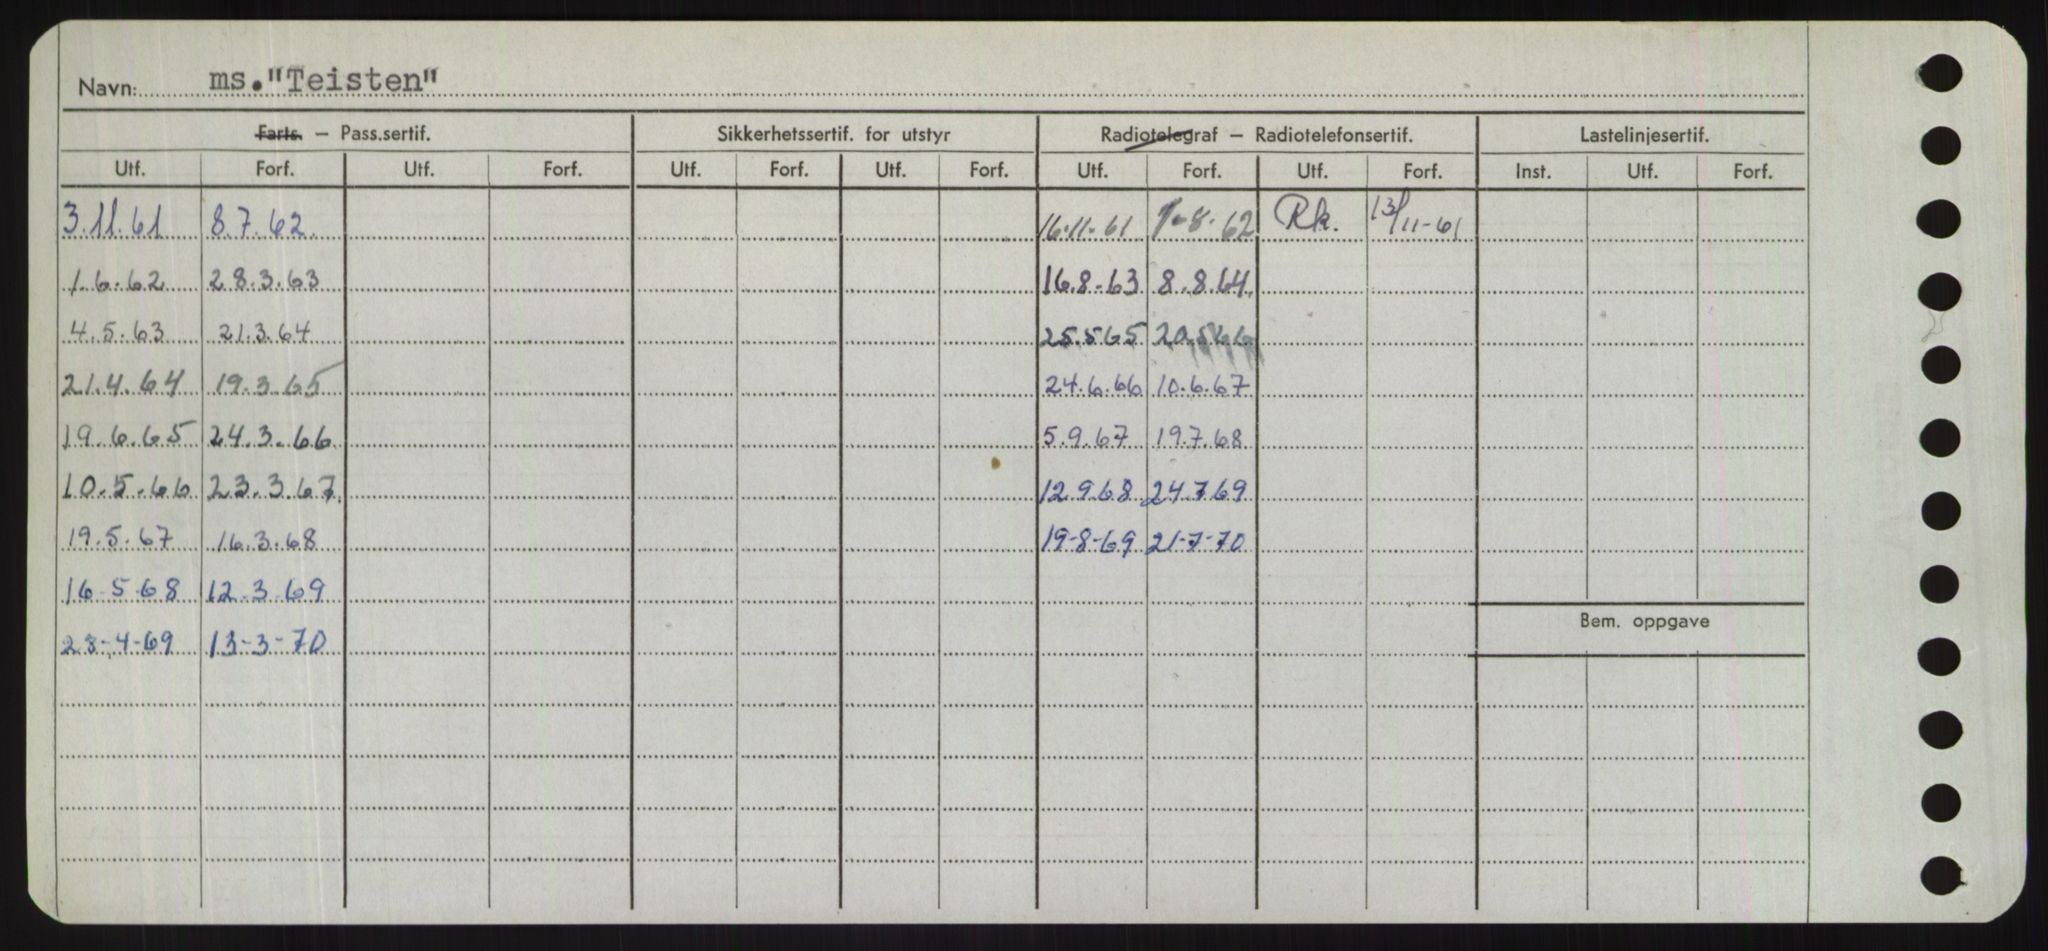 Navn: ms. "Teisten"
Farts. – Pass.sertif. Sikkerhetssertif. for utstyr Radiotelegraf – Radiotelefonsertif. Lastelinjesertif.
Utf. Forf. Utf. Forf. Utf. Forf. Utf. Forf. Utf. Forf. Utf. Forf. Inst. Utf. Forf.
3.11.61 8.7.62. 16.11-61 1-8-62 Rk. 13/11-61
1.6.62 28.3.63 16.8-63 8.8.64.
4.5.63 21.3.64 25.565 20.566
21.4.64 19.3.65 24.6.66 10.6.67
19.6.65 24.3.66 5.9.67 19.7.68
10.5.66 23.3.67. 12.968 24.769
19.5.67 16.3.68 19-8-69 21-7-70
16-5-68 12.3.69
Bem. oppgave
28-4-69 13-3-70